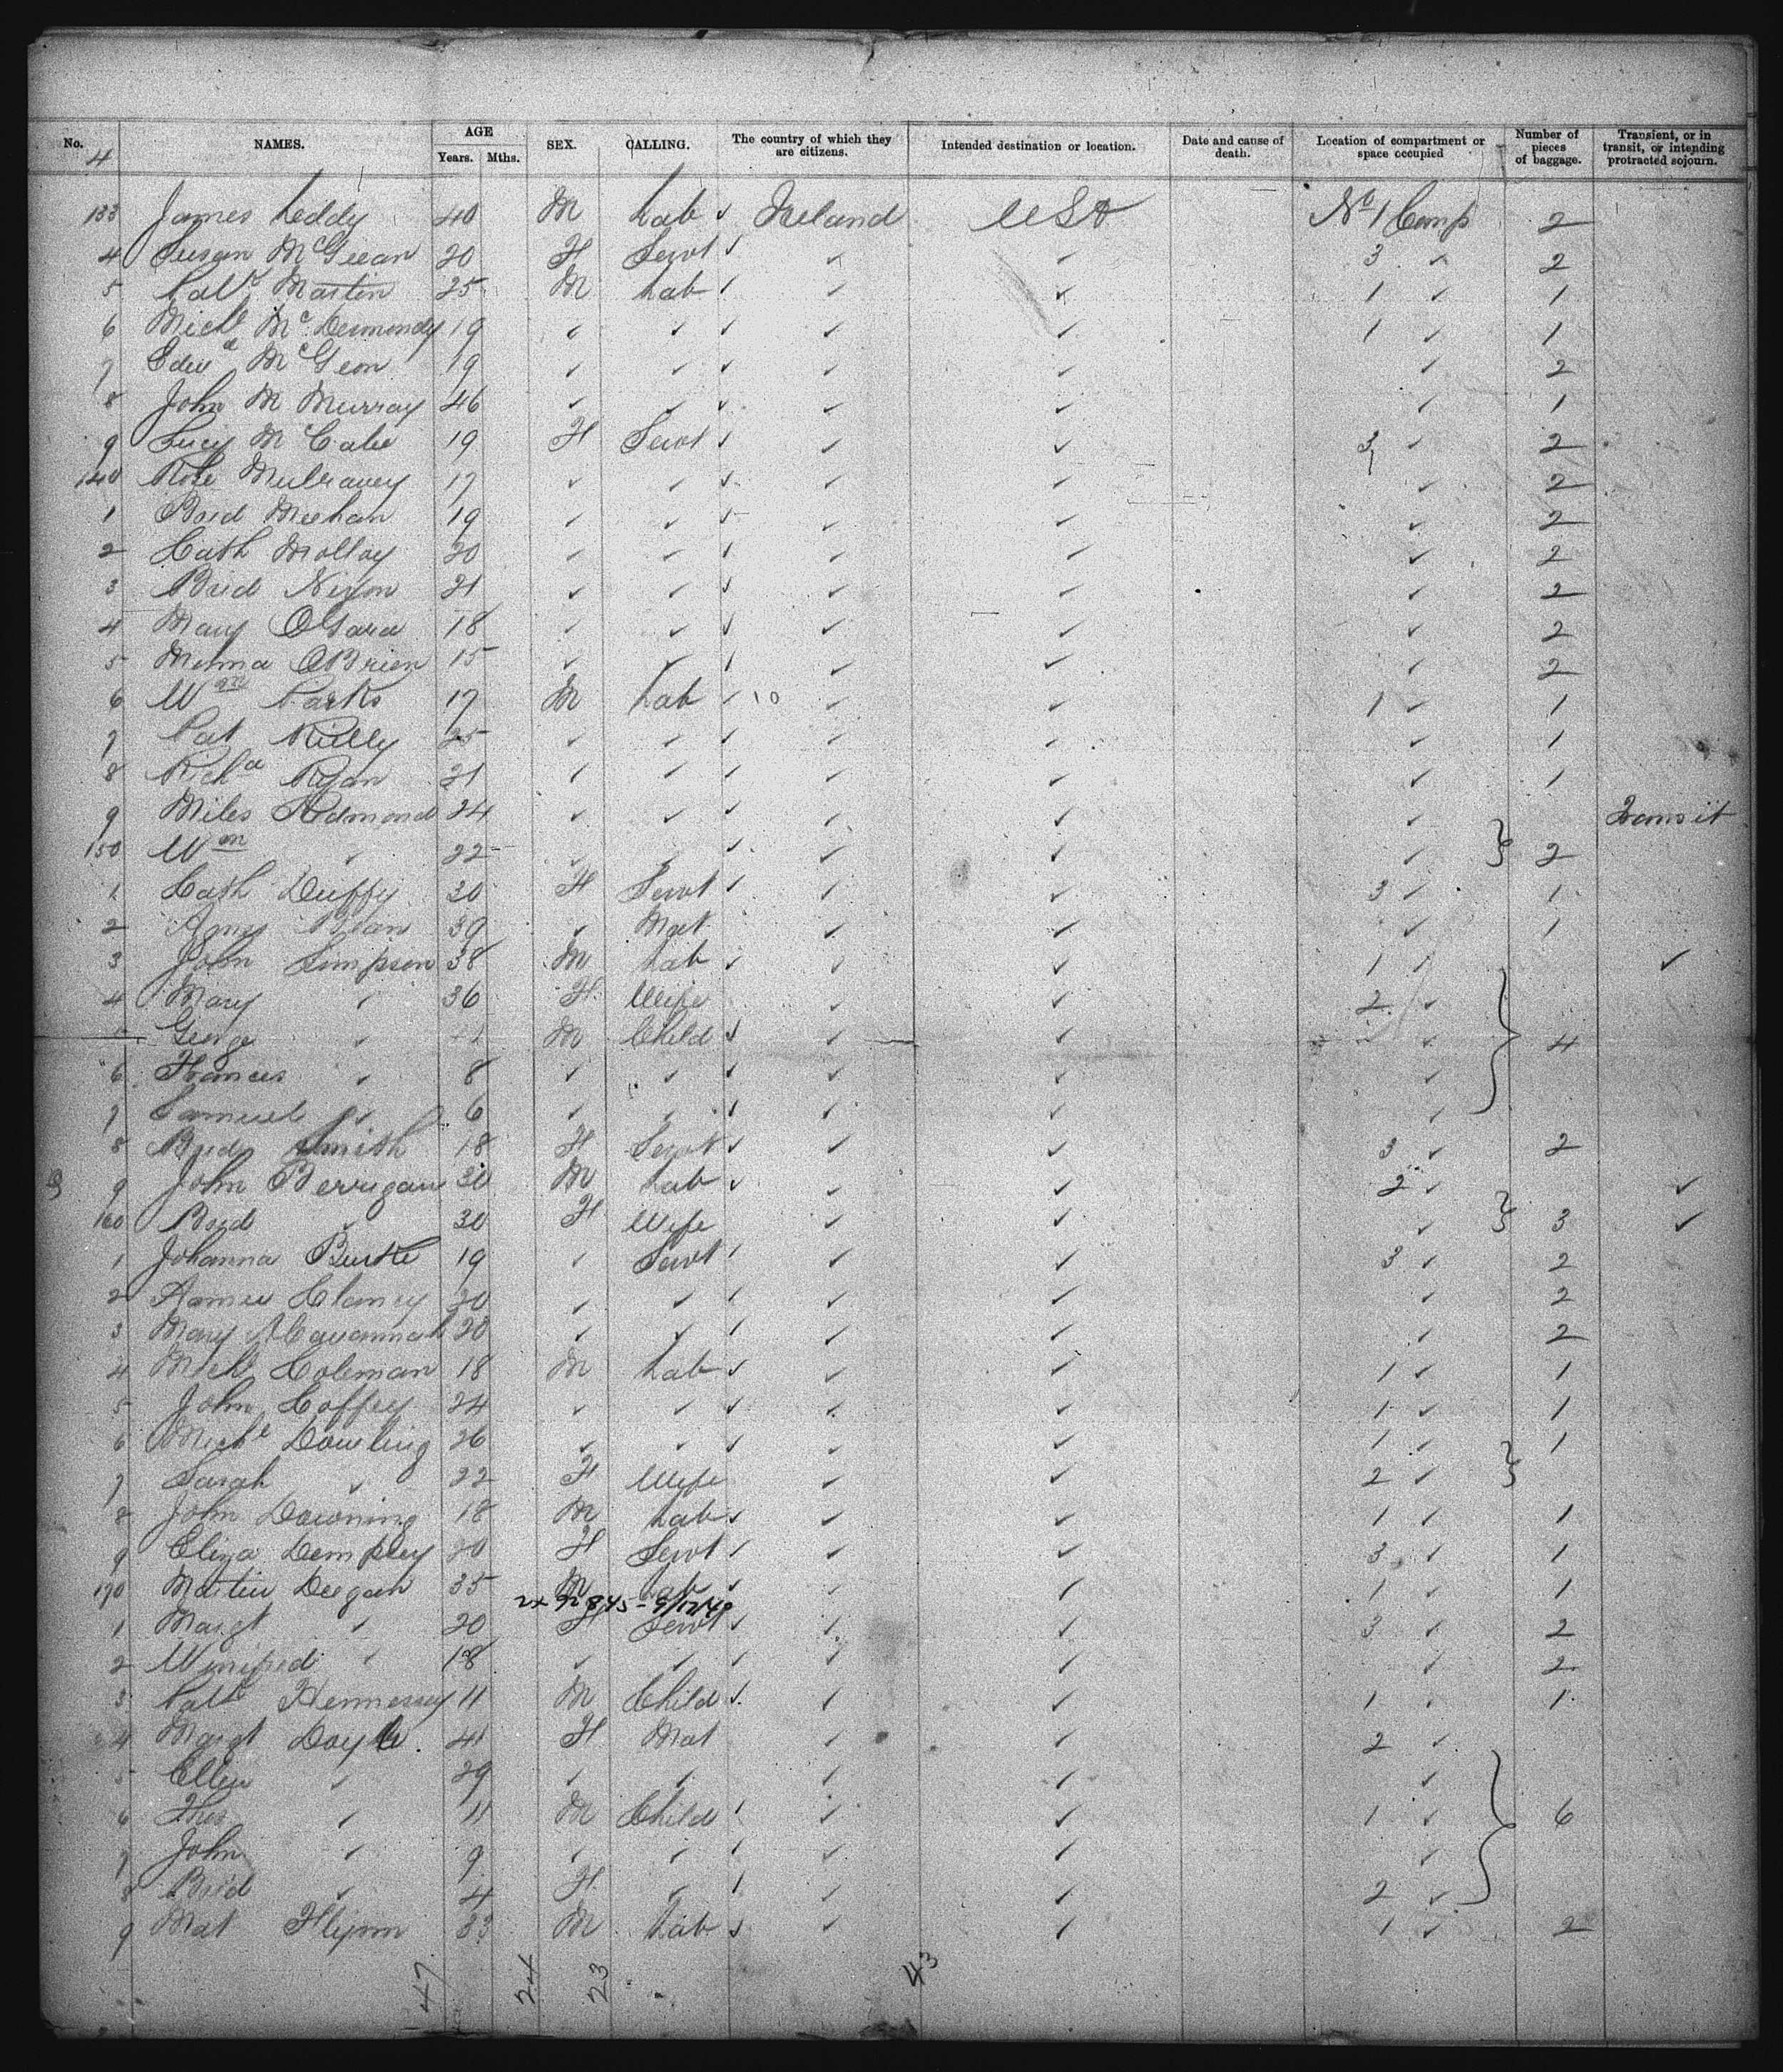 No. NAMES. AGE SEX. CALLING. The country of which they are citizens. Intended destination or location. Date and cause of death. Location of compartment or space occupied Number of pieces of baggage. Transient, or in transit, or intending protracted sojourn.
Years. Mths.
4
133 James Leddy 40 M Lab ✓ Ireland USA No 1 Comp 2
4 Susan McGeean 20 F Servt ✓ ✓ ✓ 3 ✓ 2
5 Patk Martin 25 M Lab ✓ ✓ ✓ 1 ✓ 1
6 Michl Mc 19 ✓ ✓ ✓ ✓ ✓ 1 ✓ 1
7 Edwd McGeon 19 ✓ ✓ ✓ ✓ ✓ ✓ 2
8 John M Murray 46 ✓ ✓ ✓ ✓ ✓ ✓ 1
9 Lucy McCabe 19 F Servt ✓ ✓ ✓ 3 ✓ 2
140 Rose Mulravey 17 ✓ ✓ ✓ ✓ ✓ ✓ 2
1 Brid Meehan 19 ✓ ✓ ✓ ✓ ✓ ✓ 2
2 Cath Molloy 20 ✓ ✓ ✓ ✓ ✓ ✓ 2
3 Brid Nixon 21 ✓ ✓ ✓ ✓ ✓ ✓ 2
4 Mary OGara 18 ✓ ✓ ✓ ✓ ✓ ✓ 2
5 OBrien 15 ✓ ✓ ✓ ✓ ✓ ✓ 2
6 Wm Parks 17 M Lab ✓ 10 ✓ ✓ 1 ✓ 1
7 Pat Rielly 25 ✓ ✓ ✓ ✓ ✓ ✓ 1
8 Richd Ryan 21 ✓ ✓ ✓ ✓ ✓ ✓ 1
9 Miles Redmond 24 ✓ ✓ ✓ ✓ ✓ ✓ Transit
150 Wm ✓ 22 ✓ ✓ ✓ ✓ ✓ ✓ 2
1 Cath Duffy 30 F Servt ✓ ✓ ✓ 3 ✓ 1
2 Agnes 39 ✓ Mat ✓ ✓ ✓ 1
3 John Simpson 38 M Lab ✓ ✓ ✓ 1 ✓ ✓
4 Mary ✓ 36 F Wife ✓ ✓ 2 ✓
George ✓ M Child ✓ ✓ ✓ ✓ 4
6 Frances ✓ 8 ✓ ✓ ✓ ✓ ✓ ✓
7 Samuel ✓ 6 ✓ ✓ ✓ ✓ ✓ ✓
8 Brid Smith 18 F Servt ✓ ✓ ✓ 3 ✓ 2
9 John Berrigan 30 M Lab ✓ ✓ ✓ 2 ✓ ✓
160 Brid ✓ 30 F Wife ✓ ✓ ✓ 3 ✓
1 Johanna Burke 19 ✓ Servt ✓ ✓ ✓ 3 ✓ 2
2 Clancy 20 ✓ ✓ ✓ ✓ ✓ ✓ 2
3 Mary Cavannah 20 ✓ ✓ ✓ ✓ ✓ ✓ 2
4 Michl Coleman 18 M Lab ✓ ✓ ✓ 1 ✓ 1
5 John Coffey 24 ✓ ✓ ✓ ✓ ✓ 1 ✓ 1
6 Michl Dowling 26 ✓ ✓ ✓ ✓ ✓ 1 ✓ 1
7 Sarah ✓ 22 F Wife ✓ ✓ 2 ✓
8 John Downing 18 M Lab ✓ ✓ ✓ 1 ✓ 1
9 Eliza Dempsey 20 F Servt ✓ ✓ ✓ 3 ✓ 1
170 Martin Deegan 35 M Lab ✓ ✓ ✓ 1 ✓ 1
1 Margt ✓ 20 F Servt ✓ ✓ ✓ 3 ✓ 2
2 Winifred ✓ 18 ✓ ✓ ✓ ✓ ✓ ✓ 2
3 Patk Hennessy 11 M Child ✓ ✓ ✓ 1 ✓ 1
4 Margt Doyle 41 F Mat ✓ ✓ 2 ✓
5 Ellen ✓ 29 ✓ ✓ ✓ ✓ ✓
6 Thos ✓ 11 M Child ✓ ✓ ✓ 1 ✓ 6
7 John ✓ 9 ✓ ✓ ✓ ✓ ✓ ✓
8 Brid ✓ 4 F ✓ ✓ ✓ ✓ 2 ✓
9 Mat Flynn 33 M Lab ✓ ✓ ✓ 1 ✓ 2
47 24 23 43